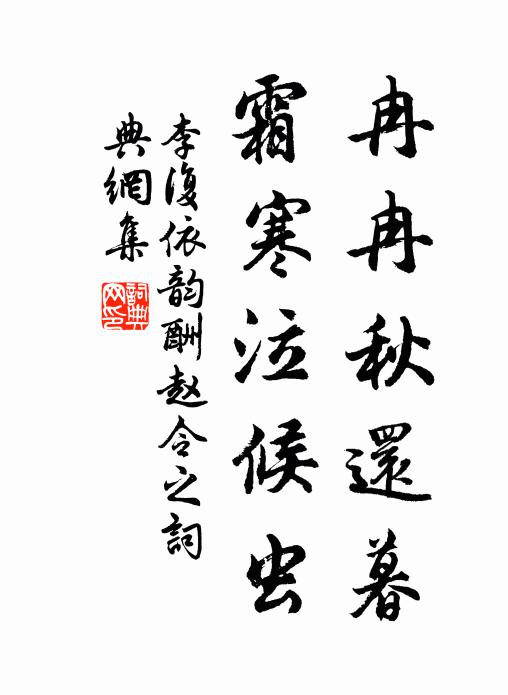 冉冉秋還暮
霜寒泣候虫
李復依韵酬赵令之詞
典網集
詞典
网印